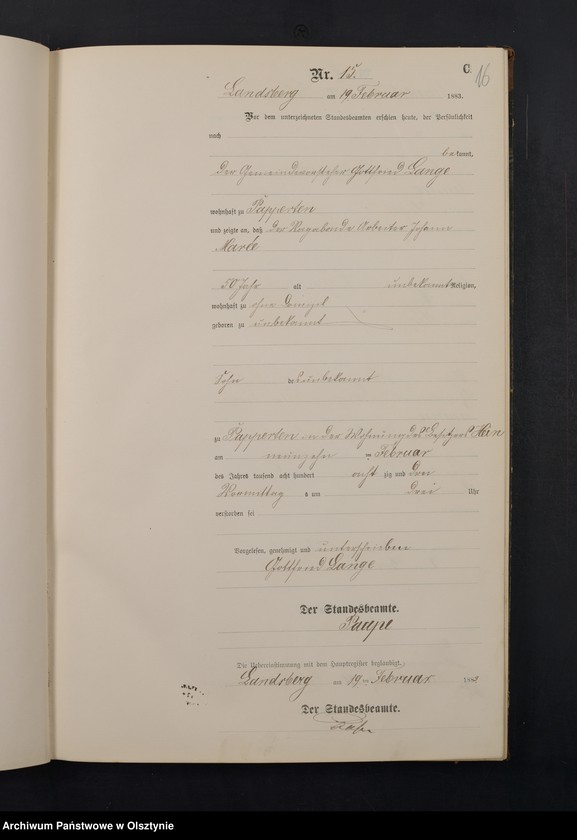 C.
16
Nr. 15.
Landsberg am 19 Februar 1883.
Vor dem unterzeichneten Standesbeamten erschien heute, der Persönlichkeit
nach
bekannt,
der Gemeindevorsteher Gottfried Lange
wohnhaft zu Papperten
und zeigte an, daß der Vagabonde Arbeiter Johann
50 Jahr alt unbekannt Religion,
wohnhaft zu ohne Domizil
geboren zu unbekannt
Sohn des unbekannt
zu Papperten in der Wohnung des Besitzers
am neunzehn ten Februar
des Jahres tausend acht hundert acht zig und drei
Vormittag s um drei Uhr
verstorben sei
Vorgelesen, genehmigt und unterschrieben
Gottfried Lange
Der Standesbeamte.
Die Uebereinstimmung mit dem Hauptregister beglaubigt.
Landsberg am 19 ten Februar 188
Der Standesbeamte.
Archiwum Państwowe w Olsztynie